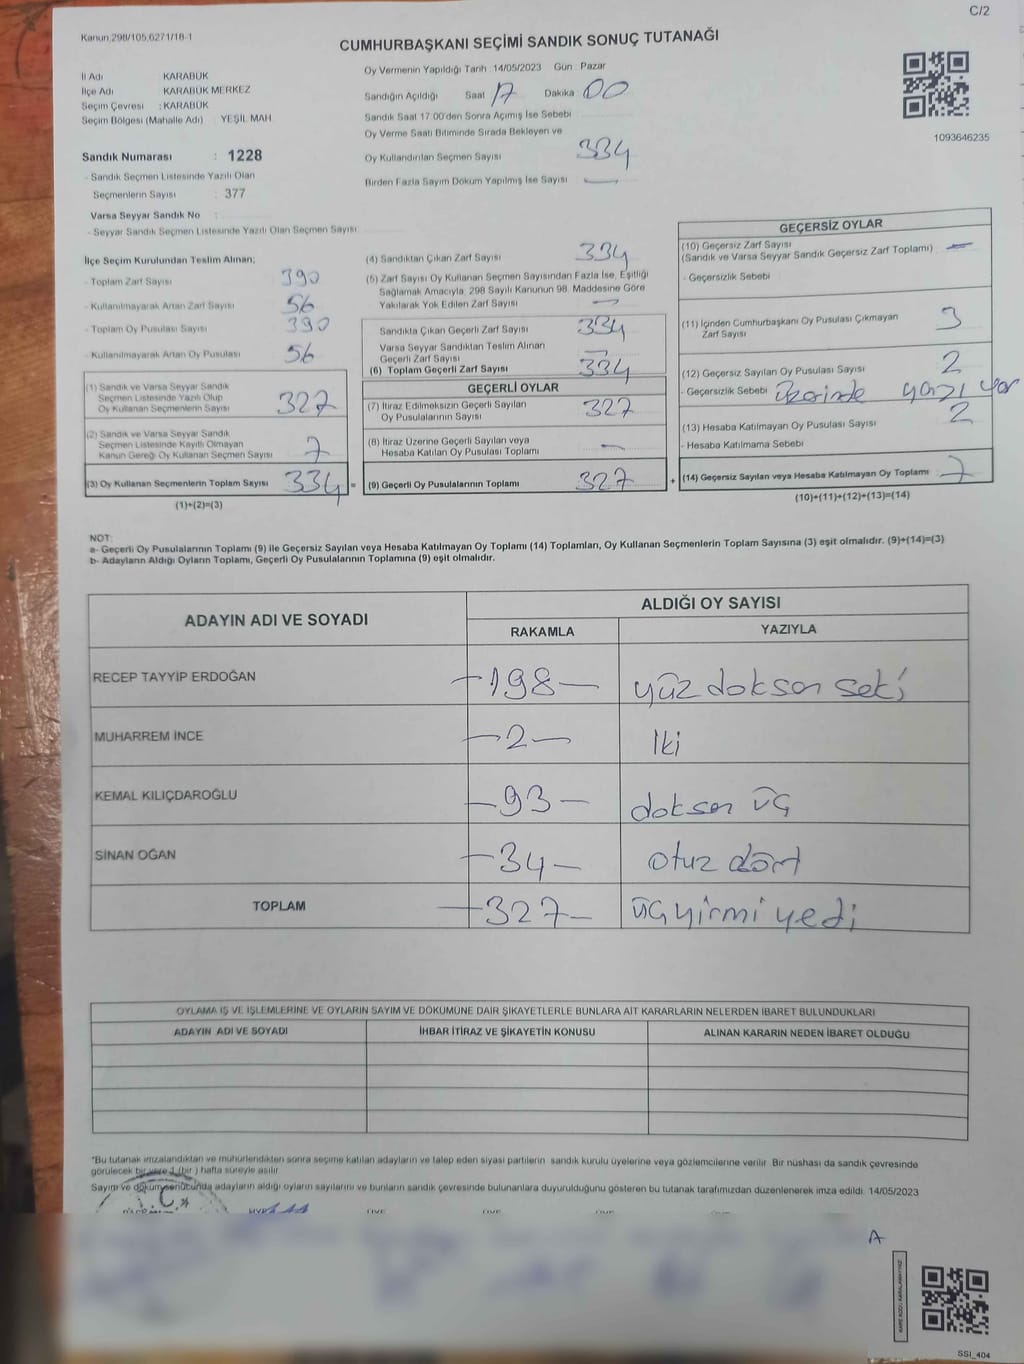 C/2
Kanun,298/105,6271/18-1
CUMHURBAŞKANI SEÇİMİ SANDIK SONUÇ TUTANAĞI
İl Adı KARABÜK
İlçe Adı KARABÜK MERKEZ
Seçim Çevresi : KARABÜK
Seçim Bölgesi (Mahalle Adı) YEŞİL MAH
Sandık Numarası : 1228
- Sandık Seçmen Listesinde Yazılı Olan
Seçmenlerin Sayısı : 377
Varsa Seyyar Sandık No :
- Seyyar Sandık Seçmen Listesinde Yazılı Olan Seçmen Sayısı
Oy Vermenin Yapıldığı Tarih : 14/05/2023 Gün : Pazar
Sandığın Açıldığı Saat 17 Dakika 00
Sandık Saat 17.00'den Sonra Açımış İse Sebebi
Oy Verme Saati Bitiminde Sırada Bekleyen ve
Oy Kullandırılan Seçmen Sayısı 334
Birden Fazla Sayım Döküm Yapılmış İse Sayısı —
1093646235
İlçe Seçim Kurulundan Teslim Alınan;
- Toplam Zarf Sayısı 390
- Kullanılmayarak Artan Zarf Sayısı 56
- Toplam Oy Pusulası Sayısı 390
- Kullanılmayarak Artan Oy Pusulası 56
(1) Sandık ve Varsa Seyyar Sandık
Seçmen Listesinde Yazılı Olup
Oy Kullanan Seçmenlerin Sayısı 327
(2) Sandık ve Varsa Seyyar Sandık
Seçmen Listesinde Kayıtlı Olmayan
Kanun Gereği Oy Kullanan Seçmen Sayısı 7
(3) Oy Kullanan Seçmenlerin Toplam Sayısı 334 =
(1)+(2)=(3)
(4) Sandıktan Çıkan Zarf Sayısı 334
(5) Zarf Sayısı Oy Kullanan Seçmen Sayısından Fazla İse, Eşitliği
Sağlamak Amacıyla, 298 Sayılı Kanunun 98. Maddesine Göre
Yakılarak Yok Edilen Zarf Sayısı —
Sandıkta Çıkan Geçerli Zarf Sayısı 334
Varsa Seyyar Sandıktan Teslim Alınan
Geçerli Zarf Sayısı —
(6) Toplam Geçerli Zarf Sayısı 334
GEÇERLİ OYLAR
(7) İtiraz Edilmeksizin Geçerli Sayılan
Oy Pusulalarının Sayısı 327
(8) İtiraz Üzerine Geçerli Sayılan veya
Hesaba Katılan Oy Pusulası Toplamı —
(9) Geçerli Oy Pusulalarının Toplamı 327 +
GEÇERSİZ OYLAR
(10) Geçersiz Zarf Sayısı
(Sandık ve Varsa Seyyar Sandık Geçersiz Zarf Toplamı) —
- Geçersizlik Sebebi
(11) İçinden Cumhurbaşkanı Oy Pusulası Çıkmayan
Zarf Sayısı 3
(12) Geçersiz Sayılan Oy Pusulası Sayısı 2
- Geçersizlik Sebebi üzerinde yazı var
(13) Hesaba Katılmayan Oy Pusulası Sayısı 2
- Hesaba Katılmama Sebebi
(14) Geçersiz Sayılan veya Hesaba Katılmayan Oy Toplamı 7
(10)+(11)+(12)+(13)=(14)
NOT:
a- Geçerli Oy Pusulalarının Toplamı (9) ile Geçersiz Sayılan veya Hesaba Katılmayan Oy Toplamı (14) Toplamları, Oy Kullanan Seçmenlerin Toplam Sayısına (3) eşit olmalıdır. (9)+(14)=(3)
b- Adayların Aldığı Oyların Toplamı, Geçerli Oy Pusulalarının Toplamına (9) eşit olmalıdır.
ADAYIN ADI VE SOYADI ALDIĞI OY SAYISI
RAKAMLA YAZIYLA
RECEP TAYYİP ERDOĞAN —198— yüz doksan seki
MUHARREM İNCE —2— İki
KEMAL KILIÇDAROĞLU —93— doksan üç
SİNAN OĞAN —34— otuz dört
TOPLAM —327— üçyirmi yedi
OYLAMA İŞ VE İŞLEMLERİNE VE OYLARIN SAYIM VE DÖKÜMÜNE DAİR ŞİKAYETLERLE BUNLARA AİT KARARLARIN NELERDEN İBARET BULUNDUKLARI
ADAYIN ADI VE SOYADI İHBAR İTİRAZ VE ŞİKAYETİN KONUSU ALINAN KARARIN NEDEN İBARET OLDUĞU
*Bu tutanak imzalandıktan ve mühürlendikten sonra seçime katılan adayların ve talep eden siyasi partilerin sandık kurulu üyelerine veya gözlemcilerine verilir. Bir nüshası da sandık çevresinde
görülecek bir yere 1 (bir ) hafta süreyle asılır
Sayım ve dökümü sonucunda adayların aldığı oyların sayılarını ve bunların sandık çevresinde bulunanlara duyurulduğunu gösteren bu tutanak tarafımızdan düzenlenerek imza edildi. 14/05/2023
A
KARE KODU KARALAMAYINIZ
SSI_404